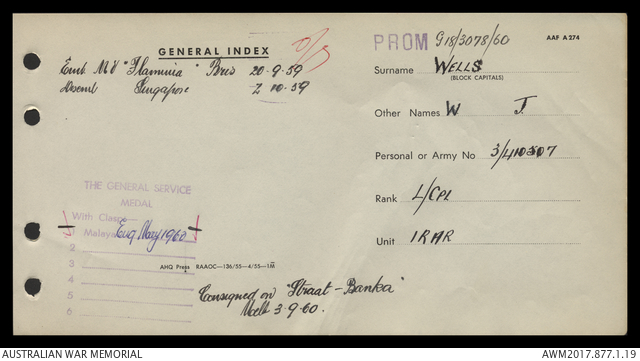 GENERAL INDEX
PROM G18/3078/60
AAF A 274
Emb. MV "Flaminia" Bris 20-9-59
Disemb Singapore 2 10.59
Surname WELLS
(BLOCK CAPITALS)
Other Names W J.
Personal or Army No 3/410507
Rank L/Cpl
Unit 1RAR
THE GENERAL SERVICE
MEDAL
With Clasps
1 Malaya Eng May 1960
2
3
4
5
6
AHQ Press RAAOC—136/55—4/55—1M
Consigned on "Straat-Banka"
Melb 3-9-60.
AUSTRALIAN WAR MEMORIAL
AWM2017.877.1.19